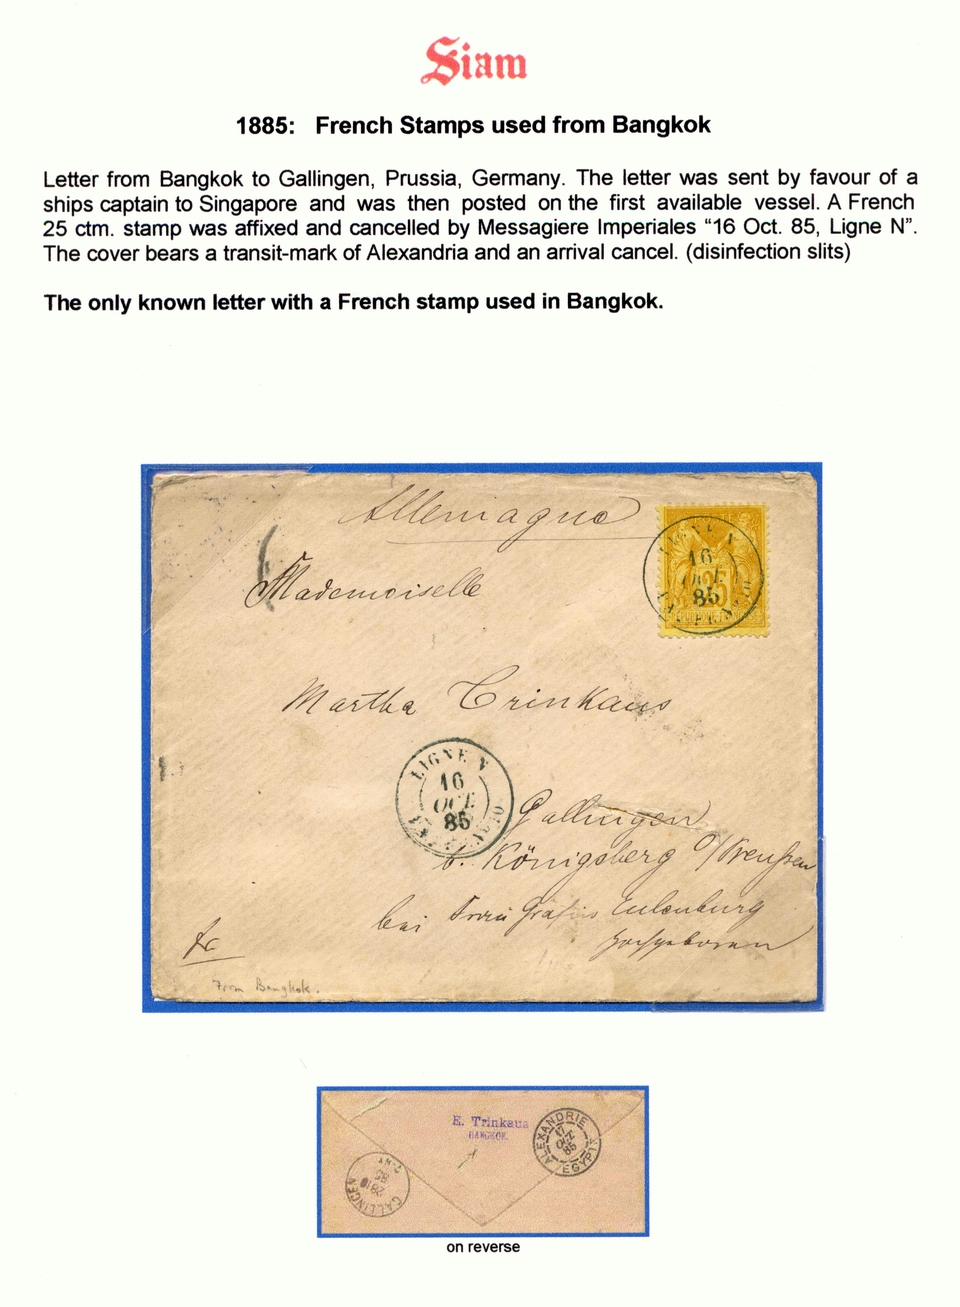 Siam
1885: French Stamps used from Bangkok
Letter from Bangkok to Gallingen, Prussia, Germany. The letter was sent by favour of a
ships captain to Singapore and was then posted on the first available vessel. A French
25 ctm. stamp was affixed and cancelled by Messagiere Imperiales “16 Oct. 85, Ligne N”.
The cover bears a transit-mark of Alexandria and an arrival cancel. (disinfection slits)
The only known letter with a French stamp used in Bangkok.
Allemagne
LIGNE N
16
OCT
85
25
Mademoiselle
Martha Trinkaus
LIGNE N
16
OCT
85
Gallingen
b. Königsberg O/Preußen
bei Frau Gräfin Eulenburg
Hochgeboren
fr
From Bangkok.
E. Trinkaus
BANGKOK
ALEXANDRIE
17
OCT
85
EGYPTE
GALLINGEN
28 10
85
on reverse